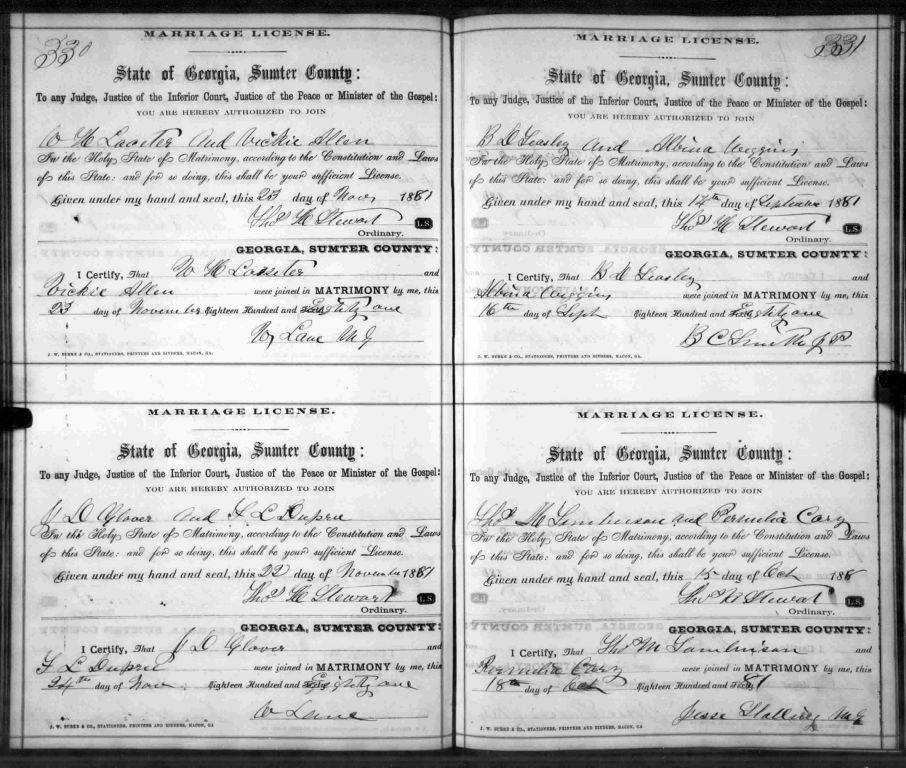 330
MARRIAGE LICENSE.
State of Georgia, Sumter County:
To any Judge, Justice of the Inferior Court, Justice of the Peace or Minister of the Gospel:
YOU ARE HEREBY AUTHORIZED TO JOIN
W H Lasseter And Vickie Allen
In the Holy State of Matrimony, according to the Constitution and Laws
of this State: and for so doing, this shall be your sufficient License.
Given under my hand and seal, this 23 day of Nov 1881
Thos H Stewart L.S.
Ordinary.
GEORGIA, SUMTER COUNTY:
I Certify, That W H Lasseter and
Vickie Allen were joined in MATRIMONY by me, this
23 day of November Eighteen Hundred and Eighty one
W Lane M G
J. W. BURKE & CO., STATIONERS, PRINTERS AND BINDERS, MACON, GA.
MARRIAGE LICENSE.
State of Georgia, Sumter County:
To any Judge, Justice of the Inferior Court, Justice of the Peace or Minister of the Gospel:
YOU ARE HEREBY AUTHORIZED TO JOIN
J D Glover and F L Dupree
In the Holy State of Matrimony, according to the Constitution and Laws
of this State: and for so doing, this shall be your sufficient License.
Given under my hand and seal, this 22 day of November 1881
Thos H Stewart L.S.
Ordinary.
GEORGIA, SUMTER COUNTY:
I Certify, That J D Glover and
F L Dupree were joined in MATRIMONY by me, this
24th day of Nov Eighteen Hundred and Eighty one
W Lane
J. W. BURKE & CO., STATIONERS, PRINTERS AND BINDERS, MACON, GA
331
MARRIAGE LICENSE.
State of Georgia, Sumter County:
To any Judge, Justice of the Inferior Court, Justice of the Peace or Minister of the Gospel:
YOU ARE HEREBY AUTHORIZED TO JOIN
B D and Albina Wiggins
In the Holy State of Matrimony, according to the Constitution and Laws
of this State: and for so doing, this shall be your sufficient License.
Given under my hand and seal, this 14th day of September 1881
Thos H Stewart L.S.
Ordinary.
GEORGIA, SUMTER COUNTY:
I Certify, That B D and
Albina Wiggins were joined in MATRIMONY by me, this
16th day of Sept Eighteen Hundred and Eighty one
B C Smith J P
J. W. BURKE & CO., STATIONERS, PRINTERS AND BINDERS, MACON, GA.
MARRIAGE LICENSE.
State of Georgia, Sumter County:
To any Judge, Justice of the Inferior Court, Justice of the Peace or Minister of the Gospel:
YOU ARE HEREBY AUTHORIZED TO JOIN
Thos M and Cary
In the Holy State of Matrimony, according to the Constitution and Laws
of this State: and for so doing, this shall be your sufficient License.
Given under my hand and seal, this 15 day of Oct 188
Thos H Stewart L.S.
Ordinary.
GEORGIA, SUMTER COUNTY:
I Certify, That Thos M and
Cary were joined in MATRIMONY by me, this
18th day of Oct Eighteen Hundred and 81
Jesse Stallings M G
J. W. BURKE & CO., STATIONERS, PRINTERS AND BINDERS, MACON, GA.